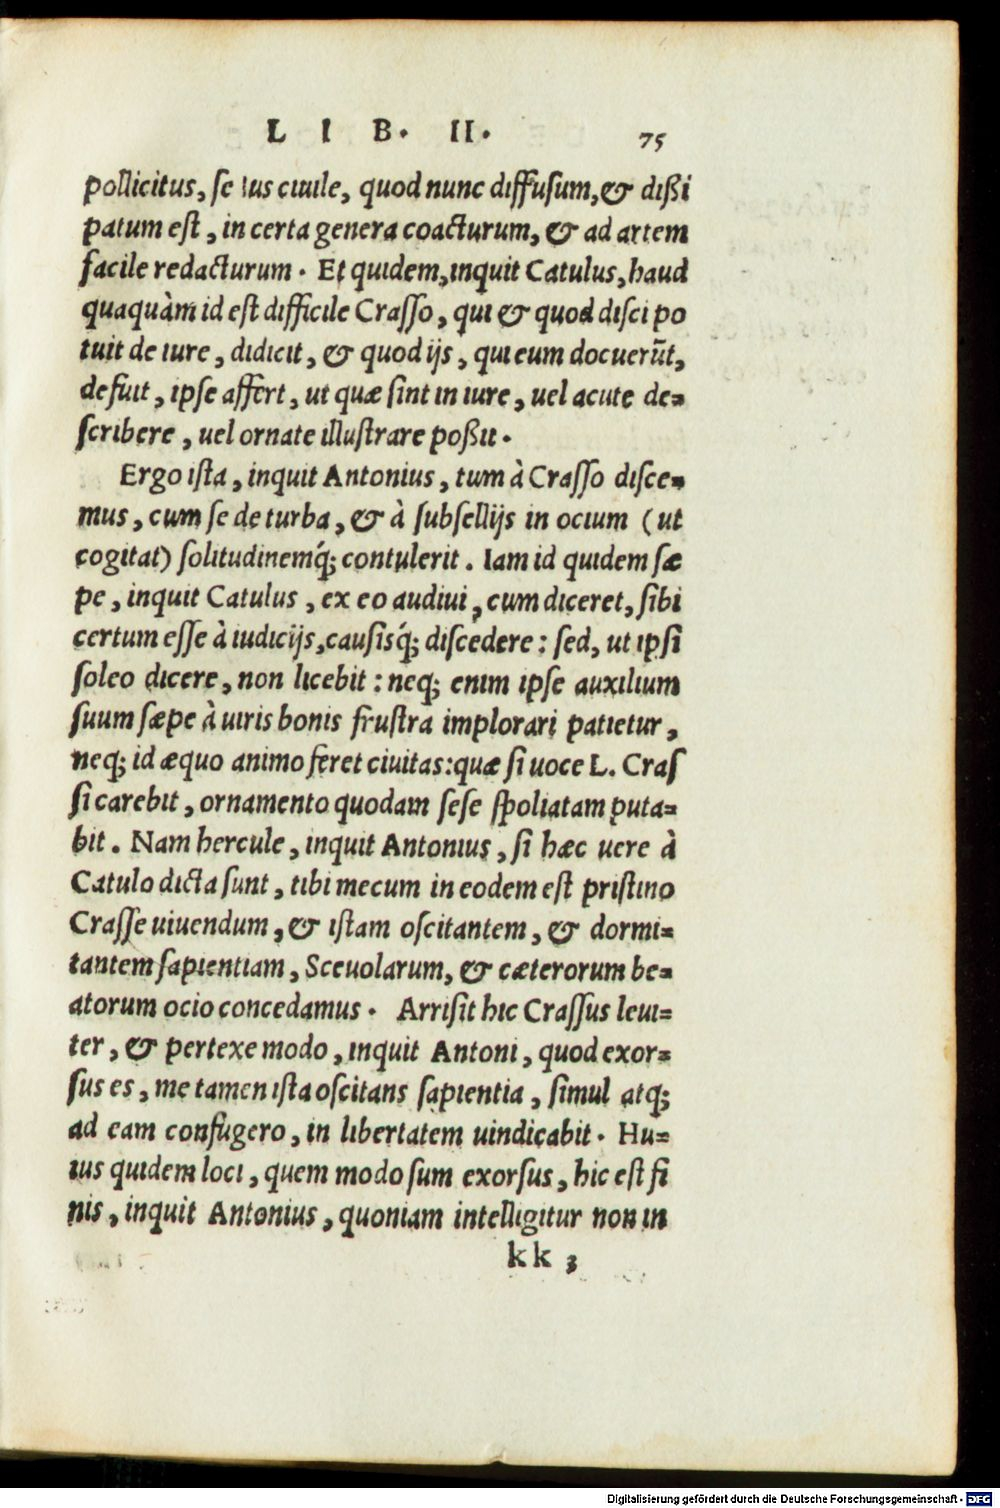 LIB. II. 75
pollicitus, se Ius ciuile, quod nunc diffusum, & dißi
patum est, in certa genera coacturum, & ad artem
facile redacturum. Et quidem, inquit Catulus, haud
quaquàm id est difficile Crasso, qui & quod disci po
tuit de iure, didicit, & quod ijs, qui eum docuerūt,
defuit, ipse affert, ut quæ sint in iure, uel acute de=
scribere, uel ornate illustrare poßit.
Ergo ista, inquit Antonius, tum à Crasso disce=
mus, cum se de turba, & à subsellijs in ocium (ut
cogitat) solitudinemq́; contulerit. Iam id quidem sæ
pe, inquit Catulus, ex eo audiui, cum diceret, sibi
certum esse à iudicijs, causisq́; discedere: sed, ut ipsi
soleo dicere, non licebit: neq; enim ipse auxilium
suum sæpe à uiris bonis frustra implorari patietur,
neq; id æquo animo feret ciuitas: quæ si uoce L. Cras
si carebit, ornamento quodam sese spoliatam puta=
bit. Nam hercule, inquit Antonius, si hæc uere à
Catulo dicta sunt, tibi mecum in eodem est pristino
Crasse uiuendum, & istam oscitantem, & dormi=
tantem sapientiam, Sceuolarum, & cæterorum be=
atorum ocio concedamus. Arrisit hic Crassus leui=
ter, & pertexe modo, inquit Antoni, quod exor=
sus es, me tamen ista oscitans sapientia, simul atq;
ad eam confugero, in libertatem uindicabit. Hu=
ius quidem loci, quem modo sum exorsus, hic est fi
nis, inquit Antonius, quoniam intelligitur non in
kk 3
Digitalisierung gefördert durch die Deutsche Forschungsgemeinschaft - DFG